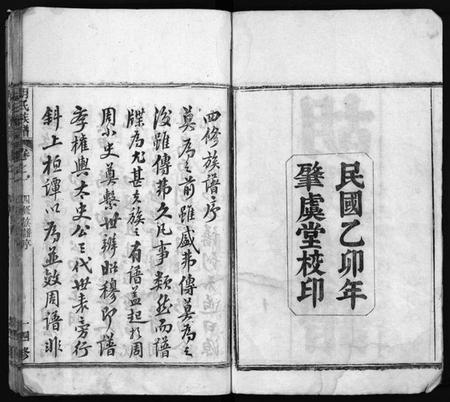 民國乙卯年
肇虞堂校印
四修族譜序
莫為之前雖盛弗傳莫為之
後雖傳弗久凡事類然而譜
牒為尤甚氏族之有譜蓋起於周
周小史奠繫世辨昭穆即譜
學權輿太史公三代世表旁行
斜上桓譚以為並效周譜非
胡氏族譜
卷之一
四修譜序
一